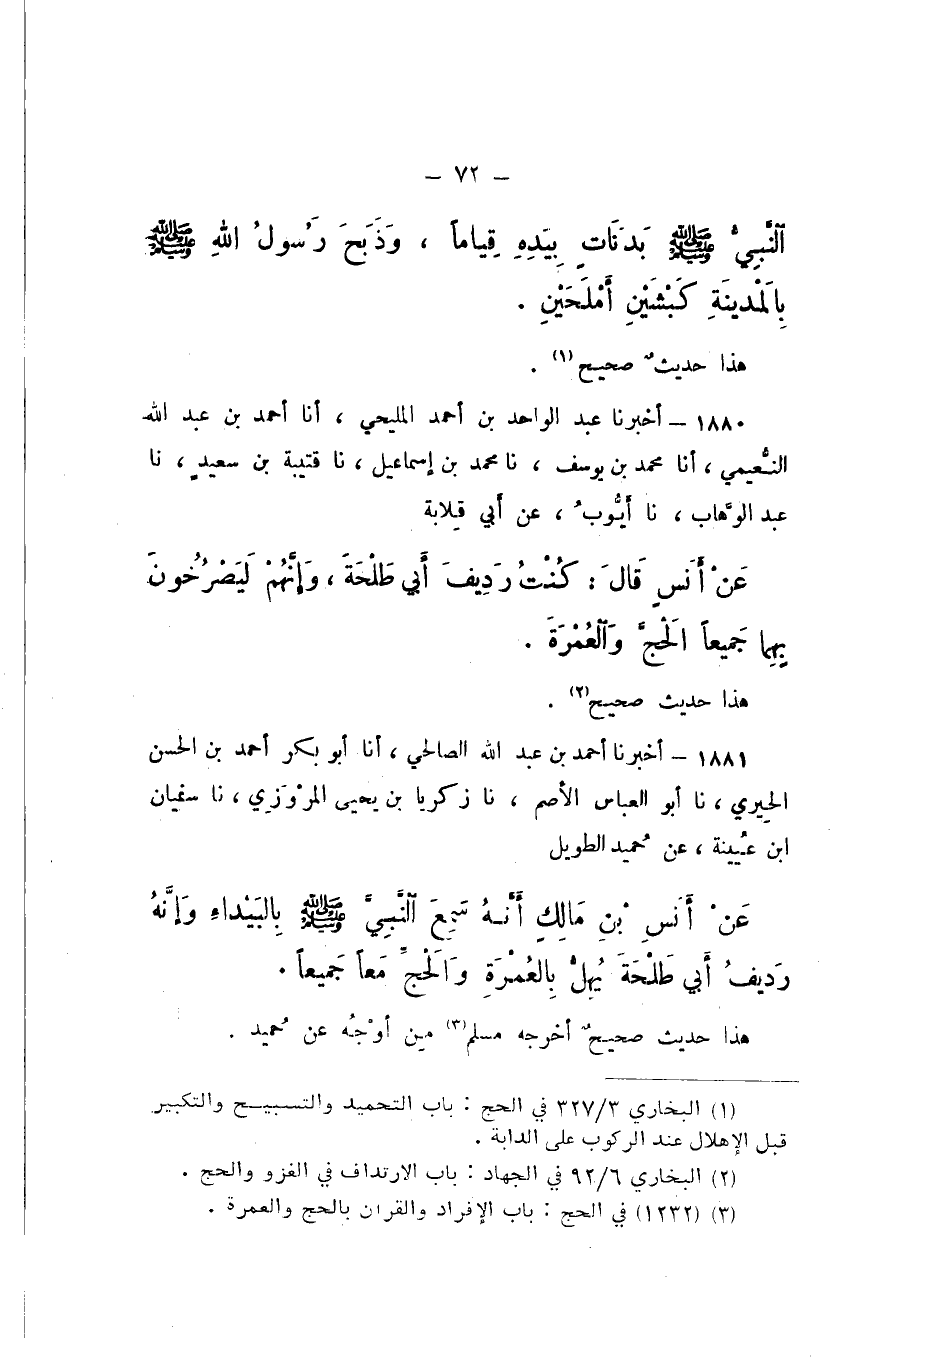 – ٧٢ –
ٱلنَّبِيُّ ﷺ بَدَنَاتٍ بِيَدِهِ قِيامًا ، وَذَبَحَ رَسُولُ اللهِ ﷺ
بِالَمْدِينَةِ كَبْشَيْنِ أَمْلَحَيْنِ .
هذا حديثٌ صحيح(١) .
١٨٨٠ – أخبرنا عبد الواحد بن أحمد المليحي ، أنا أحمد بن عبد الله
النُّعيمي ، أنا محمد بن يوسف ، نا محمد بن إسماعيل ، نا قتيبة بن سعيدٍ ، نا
عبد الوهّاب ، نا أيُّوبُ ، عن أبي قِلابة
عَنْ أَنَسٍ قَالَ : كُنْتُ رَدِيفَ أَبي طَلْحَةَ ، وَإِنَّهُمْ لَيَصْرُخُونَ
بِهِما جَمِيعاً الَحْجِّ وَٱلْعُمْرَةَ .
هذا حديث صحيح(٢) .
١٨٨١ – أخبرنا أحمد بن عبد الله الصالحي ، أنا أبو بكر أحمد بن الحسن
الحِيري ، نا أبو العباس الأصم ، نا زكريا بن يحيى المرْوَزِي ، نا سفيان
ابن عُيينة ، عن حُميد الطويل
عَنْ أَنَسِ بْنِ مَالِكٍ أَنَّهُ سَمِعَ ٱلنَّبِيَّ ﷺ بِالبَيْداءِ وَإِنَّهُ
رَدِيفُ أَبي طَلْحَةَ يُهِلُّ بِالعُمْرَةِ وَالَحْجِّ مَعاً جَمِيعاً .
هذا حديث صحيحٌ أخرجه مسلم(٣) مِن أوْجُه عن حُميد .
(١) البخاري ٣٢٧/٣ في الحج : باب التحميد والتسبيح والتكبير
قبل الإهلال عند الركوب على الدابة .
(٢) البخاري ٩٢/٦ في الجهاد : باب الارتداف في الغزو والحج .
(٣) (١٢٣٢) في الحج : باب الإفراد والقران بالحج والعمرة .